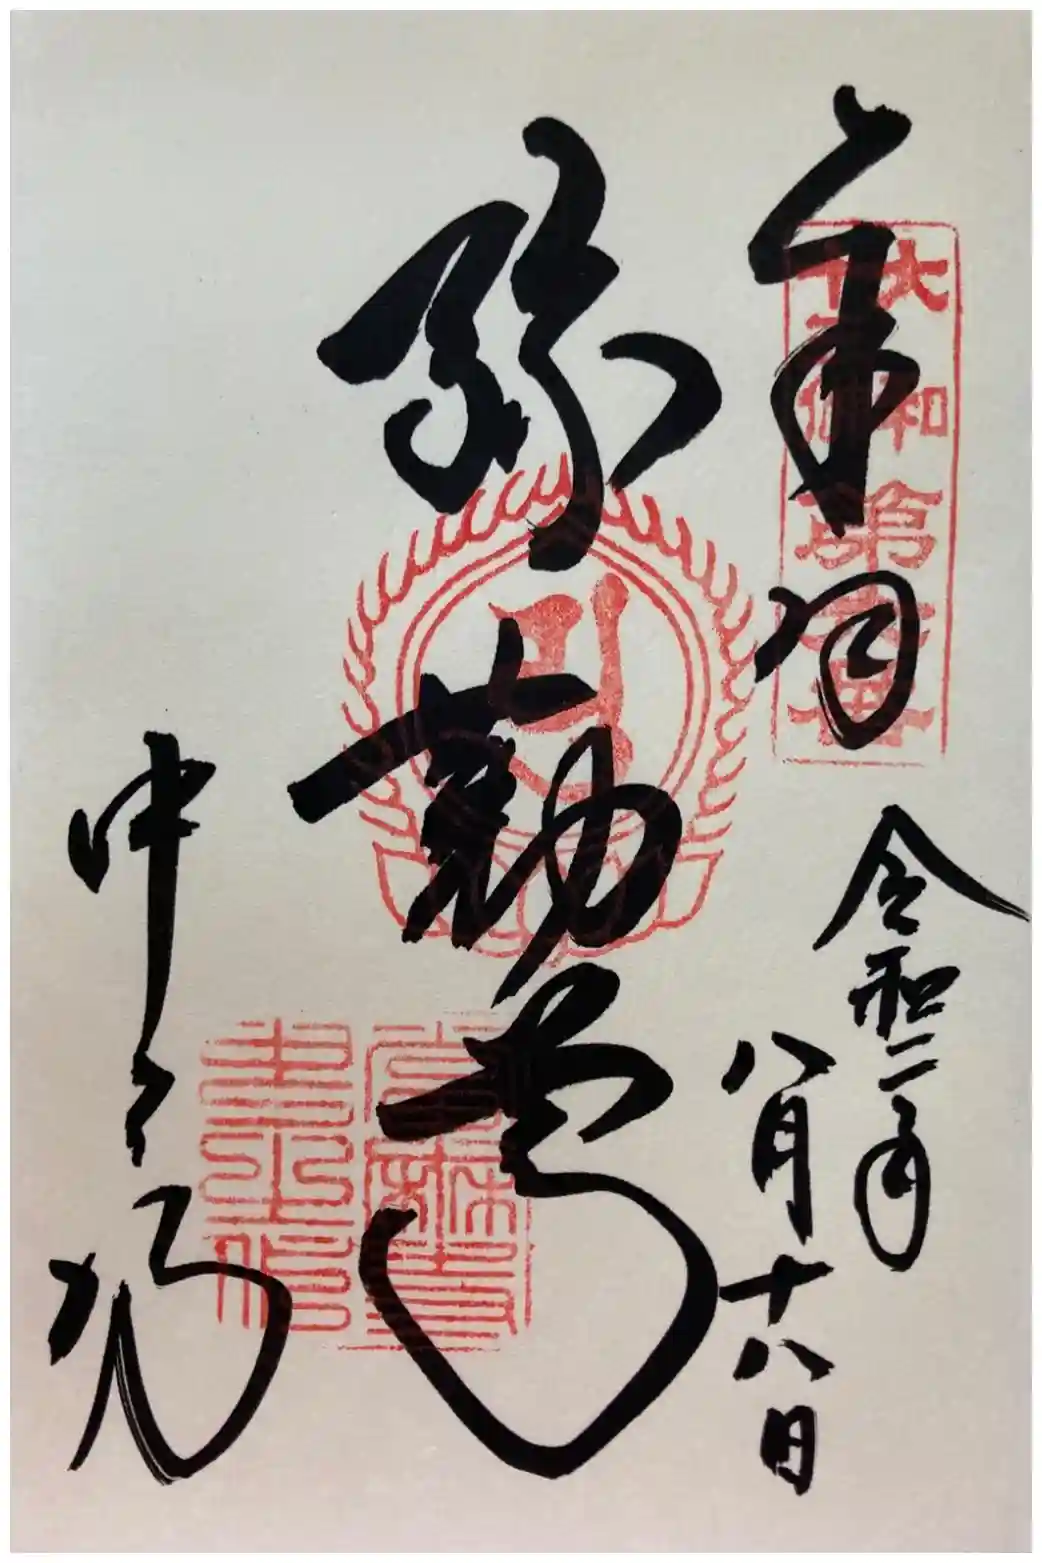 奉拝
令和二年
八月十八日
弥勒尊
中之坊
大和
十三佛
第六番
當麻寺